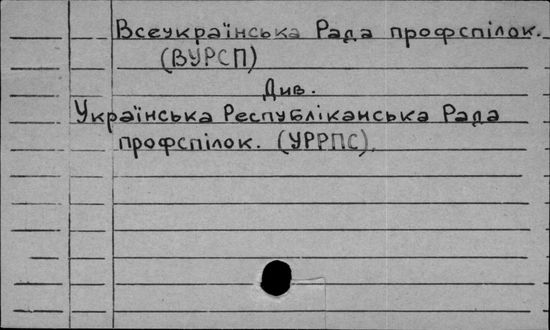 Всеукраїнська Рада профспілок.
(ВУРСП)
Див.
Українська Республіканська Рада
профспілок. (УРРПС)